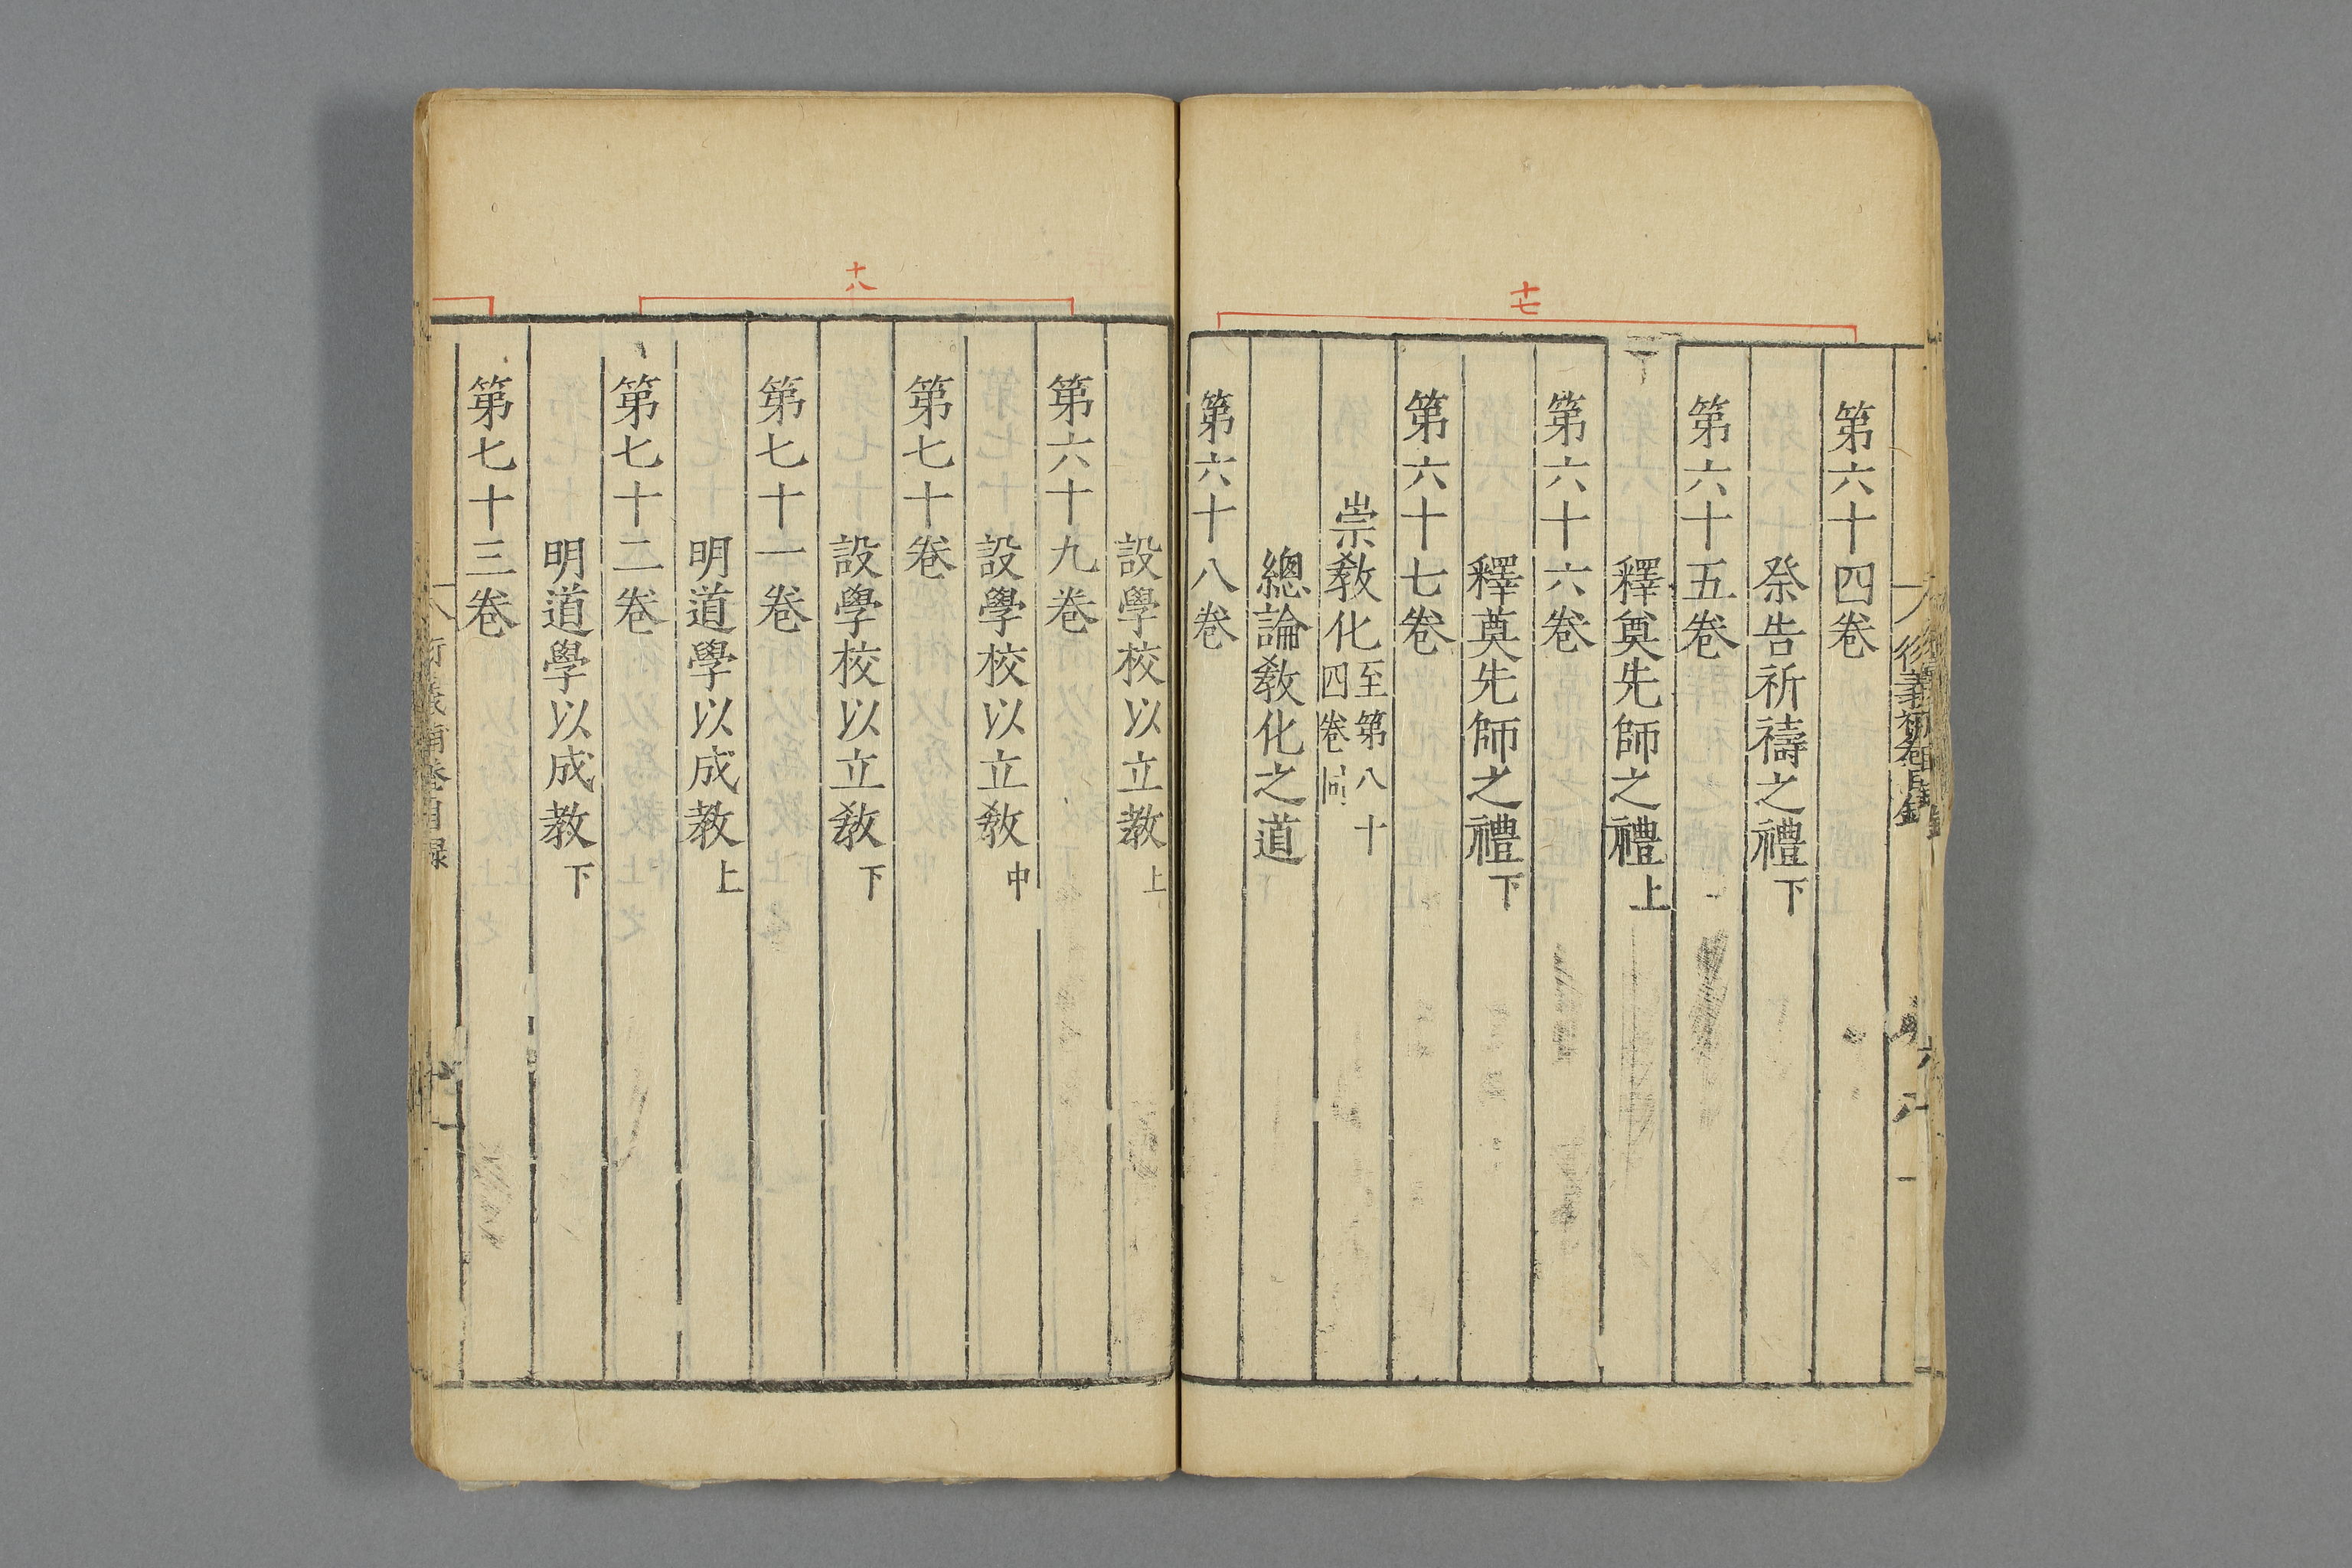 十七
第六十四卷
祭告祈禱之禮下
第六十五卷
釋奠先師之禮上
第六十六卷
釋奠先師之禮下
第六十七卷
崇敎化至第八十四卷同
總論敎化之道
第六十八卷
十八
設學校以立教上
第六十九卷
設學校以立敎中
第七十卷
設學校以立敎下
第七十一卷
明道學以成教上
第七十二卷
明道學以成教下
第七十三卷